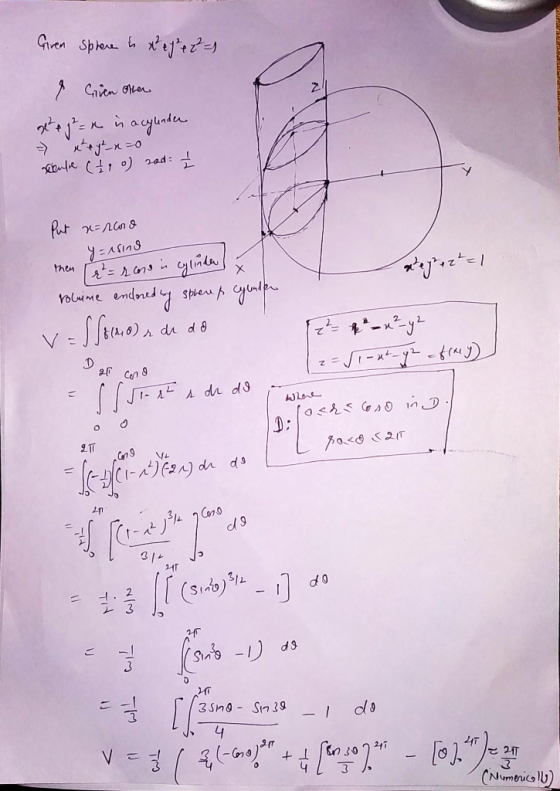 Given sphere is x²+y²+z²=1
Given other
x²+y²=x is a cylinder
⇒ x²+y²-x=0
(1/2, 0) rad: 1/2
Z
Y
X
x²+y²+z²=1
Put x=rcosθ
y=rsinθ
then r²=rcosθ is cylinder
Volume enclosed by sphere & cylinder
V = ∫∫ f(r,θ) r dr dθ
D
z² = 1-x²-y²
z = √(1-x²-y²) = f(x,y)
= ∫₀^2π ∫₀^cosθ √(1-r²) r dr dθ
where
D: 0≤r≤cosθ in D.
0≤θ≤2π
= ∫₀^2π (-1/2) ∫₀^cosθ (1-r²)^1/2 (-2r) dr dθ
= -1/2 ∫₀^2π [(1-r²)^3/2 / 3/2]₀^cosθ dθ
= 1/2 · 2/3 ∫₀^2π [(sin²θ)^3/2 - 1] dθ
= -1/3 ∫₀^2π (sin³θ - 1) dθ
= -1/3 [∫₀^2π (3sinθ - sin3θ)/4 - 1 dθ
V = -1/3 ( 3/4 (-cosθ)₀^2π + 1/4 [cos3θ/3]₀^2π - [θ]₀^2π ) ≈ 2π/3
(Numerically)